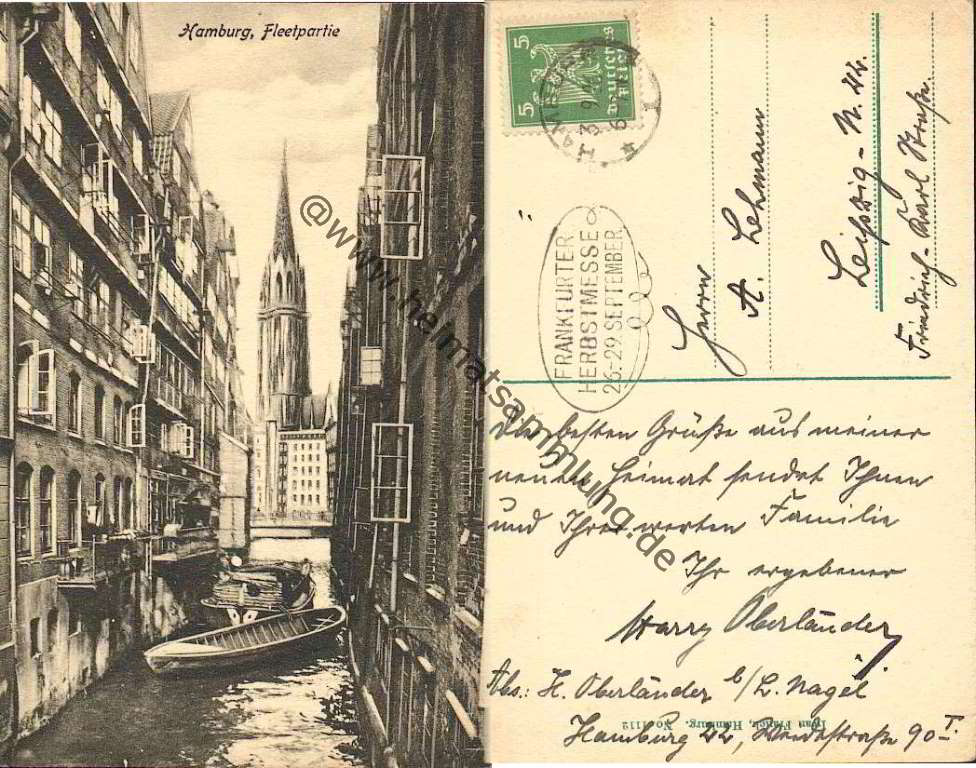 Hamburg, Fleetpartie
@www.heimatsammlung.de
5 5
Deutsches
Reich
HAMBURG
1
FRANKFURTER
HERBSTMESSE
26.-29. SEPTEMBER
Herrn
A. Lehmann
Leipzig - N. 22.
Friedrich-Karl Straße.
Die besten Grüße aus meiner
neuen Heimat sendet Ihnen
und Ihrer werten Familie
Ihr ergebener
Harry Oberländer
Abs.: H. Oberländer b/L. Nagel
Iwan Franck, Hamburg. No. 1112
Hamburg 22, Weidestraße 90 I.